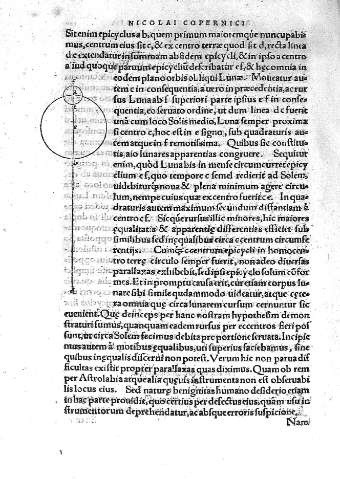 NICOLAI COPERNICI
Sit enim epicyclus a b, quem primum maioremque nuncupabi-
mus, centrum eius sit c, & ex centro terræ quod sit d, recta linea
d c extendatur in summam absidem epicycli, & in ipso centro
a aliud quoque paruum epicyclium describatur e f, & hæc omnia in
eodem plano orbis obliqui Lunæ. Moueatur au-
tem c in consequentia, a uero in præcedentia, ac rur-
sus Luna ab f superiori parte ipsius e f in conse-
quentia, eo seruato ordine, ut dum linea d c fuerit
una cum loco Solis medio, Luna semper proxima
sit centro c, hoc est in e signo, sub quadraturis au-
tem atque in f remotissima. Quibus sic constitu-
tis, aio lunares apparentias congruere. Sequitur
enim, quod Luna bis in mense circumcurret epicy-
clium e f, quo tempore c semel redierit ad Solem,
uidebitur noua & plena minimum agere circu-
lum, nempe cuius quæ ex centro fuerit c e. In qua-
draturis autem maximum secundum distantiam à
centro c f. Sicque rursus illic minores, hic maiores
æqualitatis & apparentiæ differentias efficiet sub
similibus sed inæqualibus circa c centrum circumfe-
rentijs. Cumque c centrum epicycli in homocen-
tro terræ circulo semper fuerit, non adeo diuersas
parallaxas exhibebit, sed ipsi epicyclo solum cōfor-
mes. Et in promptu causa erit, cur etiam corpus lu-
nare sibi simile quodammodo uideatur, atque cæte-
ra omnia quæ circa lunarem cursum cernuntur sic
euenient. Quæ deinceps per hanc nostram hypothesim demon
straturi sumus, quanquam eadem rursus per eccentros fieri pos
sunt, ut circa Solem fecimus debita proportione seruata. Incipie
mus autem à motibus æqualibus, uti superius faciebamus, sine
quibus inæqualis discerni non potest. Verum hic non parua dif
ficultas existit propter parallaxas quas diximus. Quam ob rem
per Astrolabia atque alia quæuis instrumenta non est obseruabi
lis locus eius. Sed naturæ benignitas humano desiderio etiam
in hac parte prouidit, quo certius per defectus eius, quàm usu in
strumentorum deprehendatur, ac absque erroris suspicione.
Nam